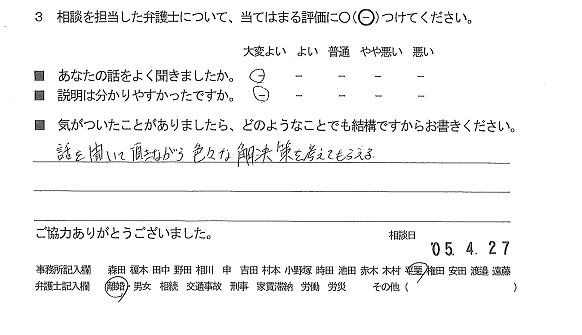 3 相談を担当した弁護士について、当てはまる評価に○(⊖)つけてください。
大変よい よい 普通 やや悪い 悪い
■ あなたの話をよく聞きましたか。 － － － － －
■ 説明は分かりやすかったですか。 － － － － －
■ 気がついたことがありましたら、どのようなことでも結構ですからお書きください。
話を聞いて頂きながら色々な解決策を考えてもらえる
ご協力ありがとうございました。 相談日 '05. 4. 27
事務所記入欄 森田 榎本 田中 野田 相川 申 吉田 村本 小野塚 時田 池田 赤木 木村 権田 安田 渡邉 遠藤
弁護士記入欄 離婚・男女 相続 交通事故 刑事 家賃滞納 労働 労災 その他 (